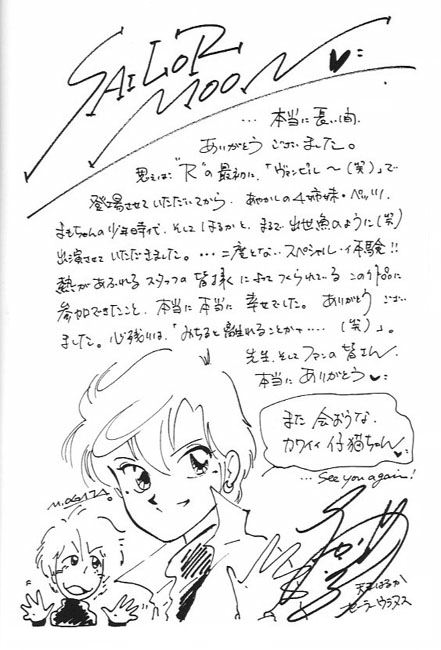 SAILOR
MOON ♥
… 本当に長い間、
ありがとう ございました。
思えば "R" の最初に、「ヴァンピル〜(笑)」で
登場させていただいてから、あやかしの4姉妹・ペッツ、
まもちゃんの少年時代、そしてはるかと、まるで出世魚のように(笑)
出演させていただきました。・・・二度とない、スペシャル・イ体験!!
熱があふれる スタッフの皆様によってつくられている この作品に
参加できたこと、本当に本当に 幸せでした。 ありがとう ござい
ました。心残りは、「みちると離れることかナ‥‥ (笑)」。
先生、そして ファンの皆さん、
本当に ありがとう ♥
また 会おうな、
カワイイ 仔猫ちゃん ♥
… See you again!
M.OGATA.
天王はるか
セーラーウラヌス